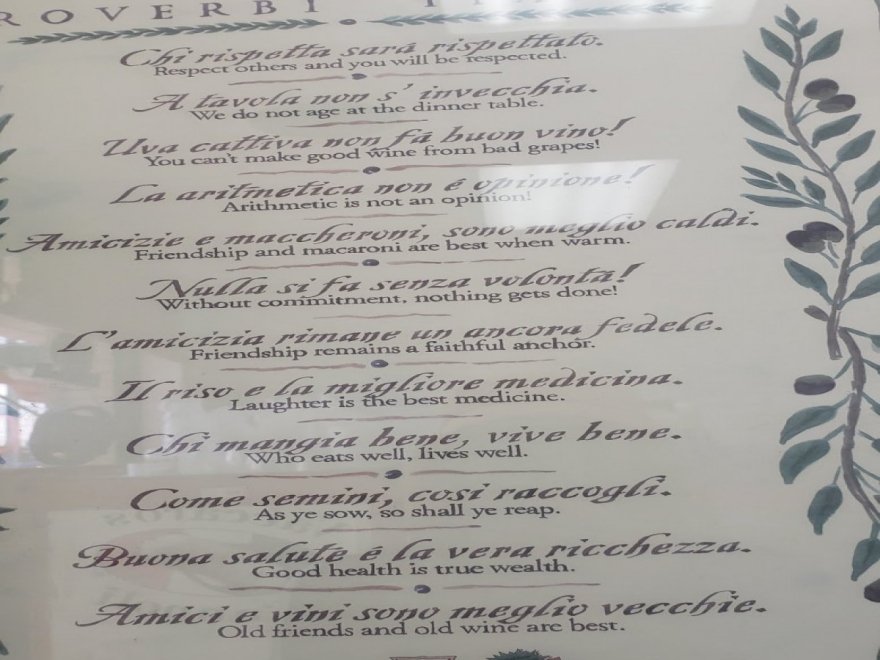 ROVERBI
Chi rispetta sará rispettato.
Respect others and you will be respected.
A tavola non s' invecchia.
We do not age at the dinner table.
Uva cattiva non fá buon vino!
You can't make good wine from bad grapes!
La aritmetica non é opinione!
Arithmetic is not an opinion!
Amicizie e maccheroni, sono meglio caldi.
Friendship and macaroni are best when warm.
Nulla si fa senza volontá!
Without commitment, nothing gets done!
L'amicizia rimane un ancora fedele.
Friendship remains a faithful anchor.
Il riso e la migliore medicina.
Laughter is the best medicine.
Chi mangia bene, vive bene.
Who eats well, lives well.
Come semini, cosi raccogli.
As ye sow, so shall ye reap.
Buona salute é la vera ricchezza.
Good health is true wealth.
Amici e vini sono meglio vecchie.
Old friends and old wine are best.